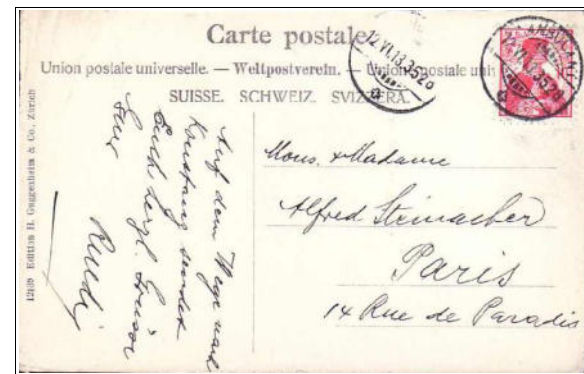 Carte postale
Union postale universelle. — Weltpostverein. — Unione postale uni
SUISSE. SCHWEIZ. SVIZZERA.
12 VI.13.3520
12 VI.13.3520
12169 Edition H. Guggenheim & Co., Zürich
Auf dem Wege nach
Konstanz sendet
Euch herzl. Grüsse
Euer
Ruedi
Mons. & Madame
Alfred Steinacher
Paris
14 Rue de Paradis